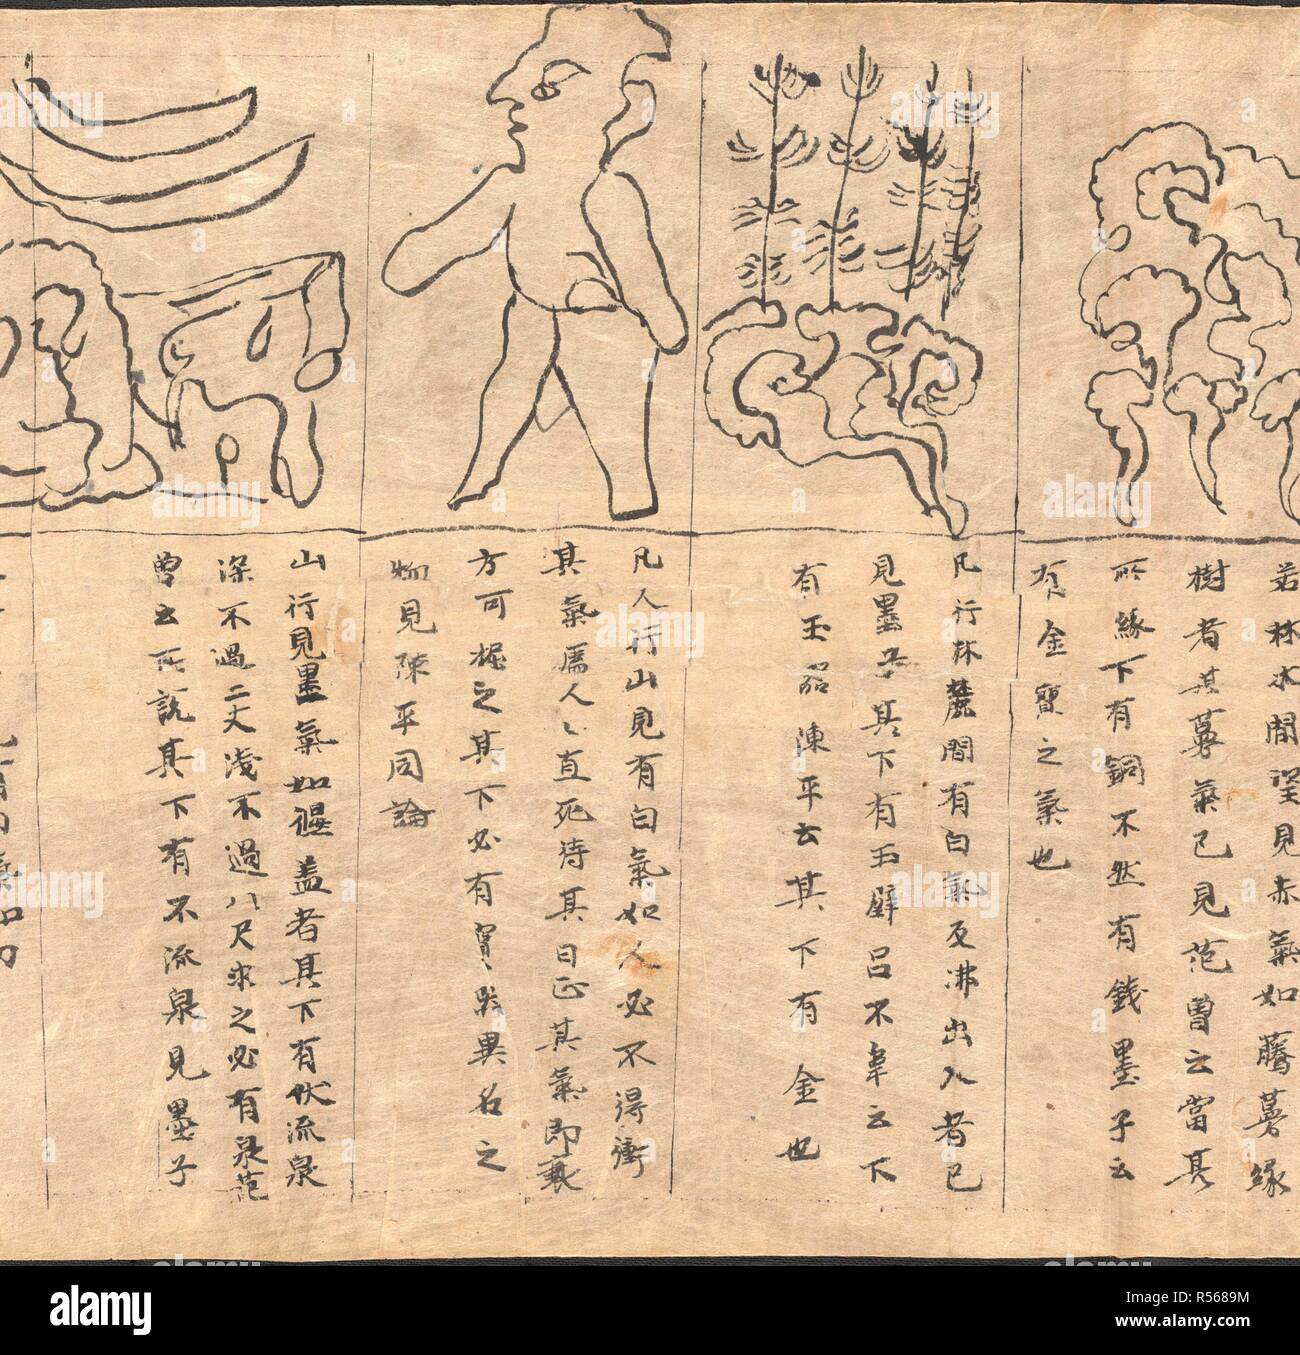 若林水間望見赤氣如騰蔓緣
樹者其蔓氣已見范曾云當其
所緣下有銅不然有錢墨子云
有金寶之氣也
凡行林麓間有白氣及沸出入者已
見墨子其下有玉璧呂不韋云下
有玉器陳平云其下有金也
凡人行山見有白氣如人必不得衝
其氣為人人直死待其日正其氣即衰
方可掘之其下必有寶
異名之
物見陳平同論
山行見墨氣如偃盖者其下有伏流泉
深不過二丈淺不過八尺求之必有泉范
曾云所說其下有不流泉見墨子
氣如
alamy
Image ID: R5689M
www.alamy.com